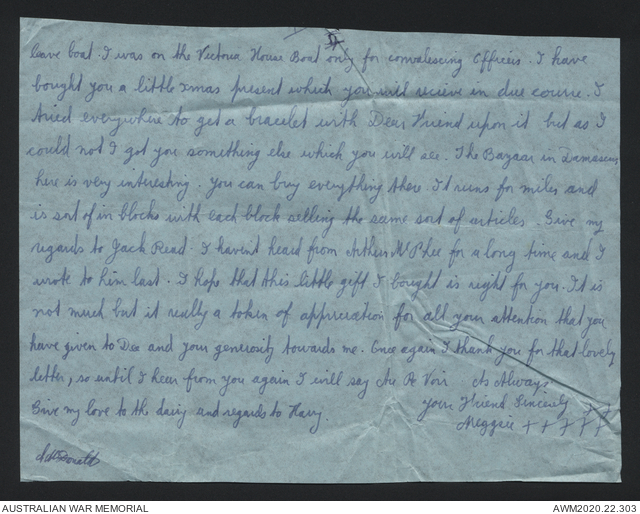 leave boat. I was on the Victoria House Boat only for convalescing Officers. I have
bought you a little xmas present which you will recieve in due course. I
tried everywhere to get a bracelet with Dear Friend upon it but as I
could not I got you something else which you will see. The Bazaar in Damascus
here is very interesting. You can buy everything there. It runs for miles and
is sort of in blocks with each block selling the same sort of articles. Give my
regards to Jack Read. I havent heard from Arthur McPhee for a long time and I
wrote to him last. I hope that this little gift I bought is right for you. It is
not much but it really a token of appreciation for all your attention that you
have given to Dee and your generosity towards me. Once again I thank you for that lovely
letter, so until I hear from you again I will say Au Re Voir As Always
Give my love to the dairy and regards to Harry.
Your Friend Sincerely
+ + + + +
AUSTRALIAN WAR MEMORIAL
AWM2020.22.303